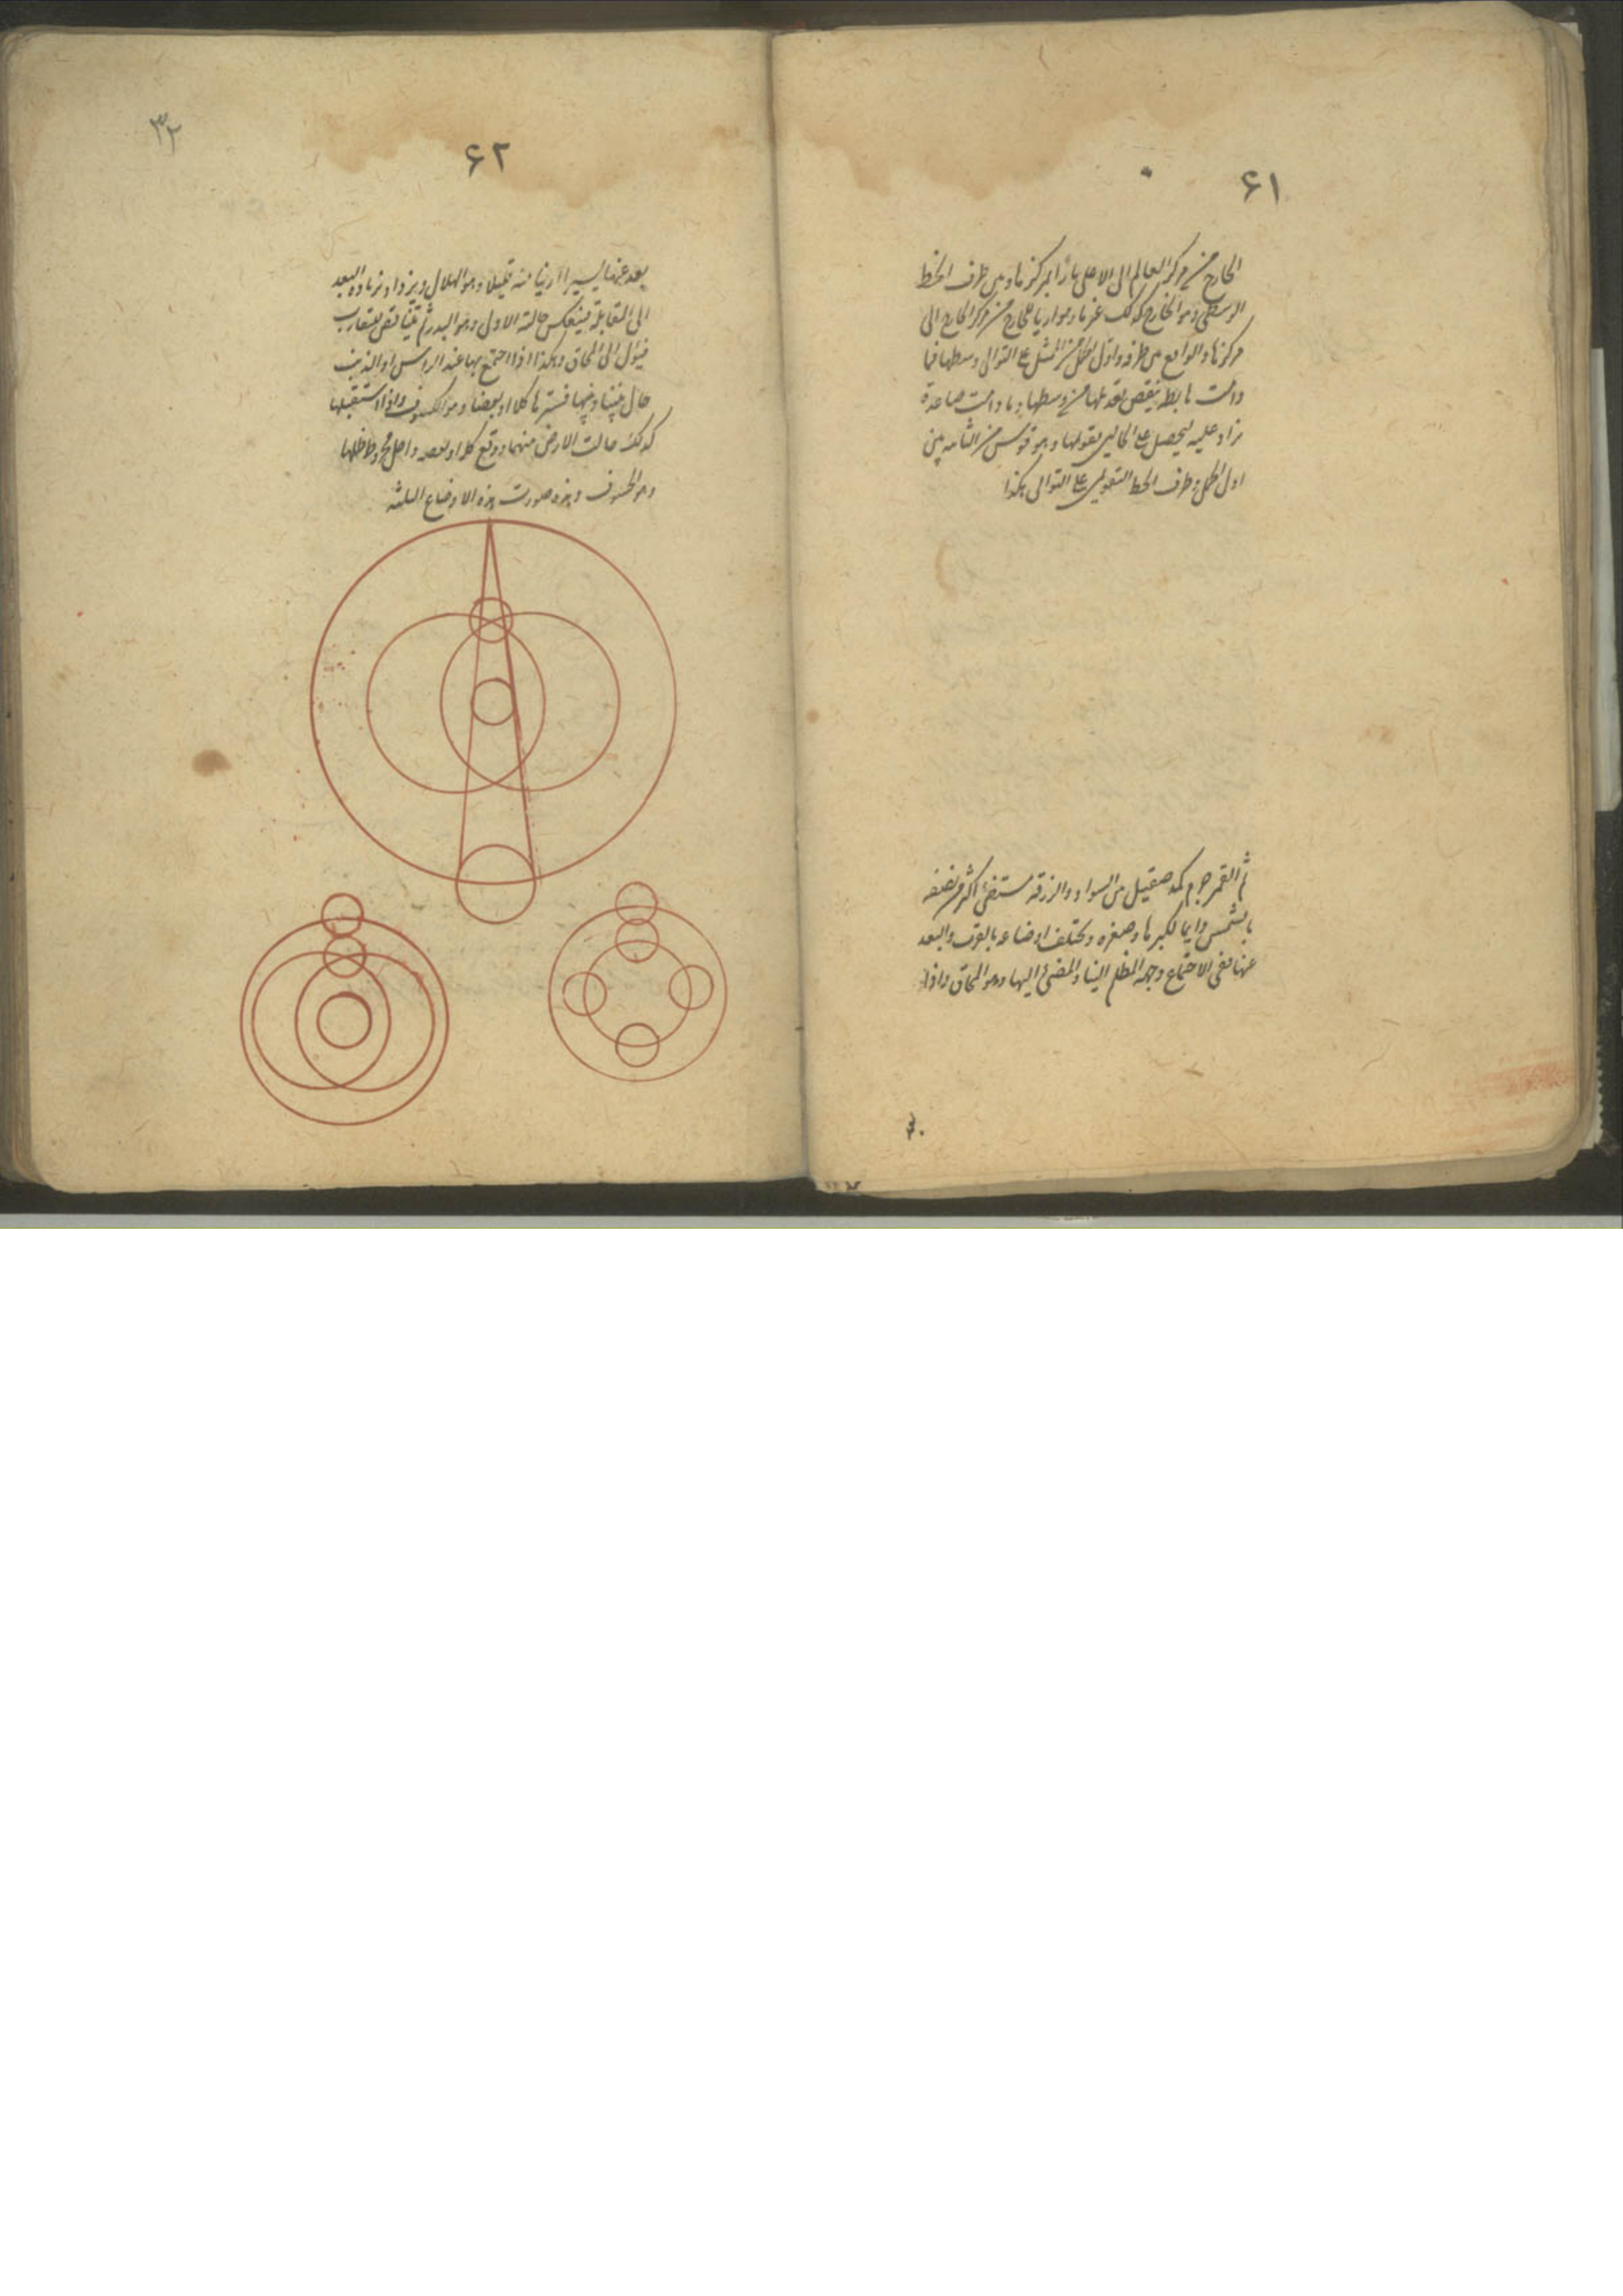 ۶۱
الخارج من مركز العالم الى الاعلى مارًا بمركزها وهى طرف الخط
الوسطى وهو الخارج كذلك غير مار وموازيا للخارج من مركز الخارج الى
مركزها والواقع من طرفه واول الحمل من الممثل على التوالى وسطها فما
دامت هابطة ينقص تعديلها من وسطها وما دامت صاعدة
زاد عليه ليحصل على الحالين تقويمها وهو قوس من الثامنة بين
اول الحمل وطرف الخط التقويمى على التوالى هكذا
ثم القمر جرم كمد صقيل من السواد والزرقة مستضئ اكثر من نصفه
بالشمس دايما لكبرها وصغره وتختلف اوضاعه بالقرب والبعد
عنها ففى الاجتماع وجهه المظلم الينا والمضئ اليها وهو المحاق واذا
۶۲
۳۲
بعد عنها يسيرا ارينا منه قليلا وهو الهلال ويزداد بزيادة البعد
الى المقابلة فينعكس حالته الاولى وهو البدر ثم يتناقص للتقارب
فيؤل الى المحاق وهكذا اذا اجتمع بها عند الراس او الذنب
حال بيننا وبينها فسترها كلا او بعضا وهو الكسوف واذا استقبلها
كذلك حالت الارض بينهما ووقع كله او بعضه داخل مخروط ظلها
وهو الخسوف وهذه صورت هذه الاوضاع الثلثة